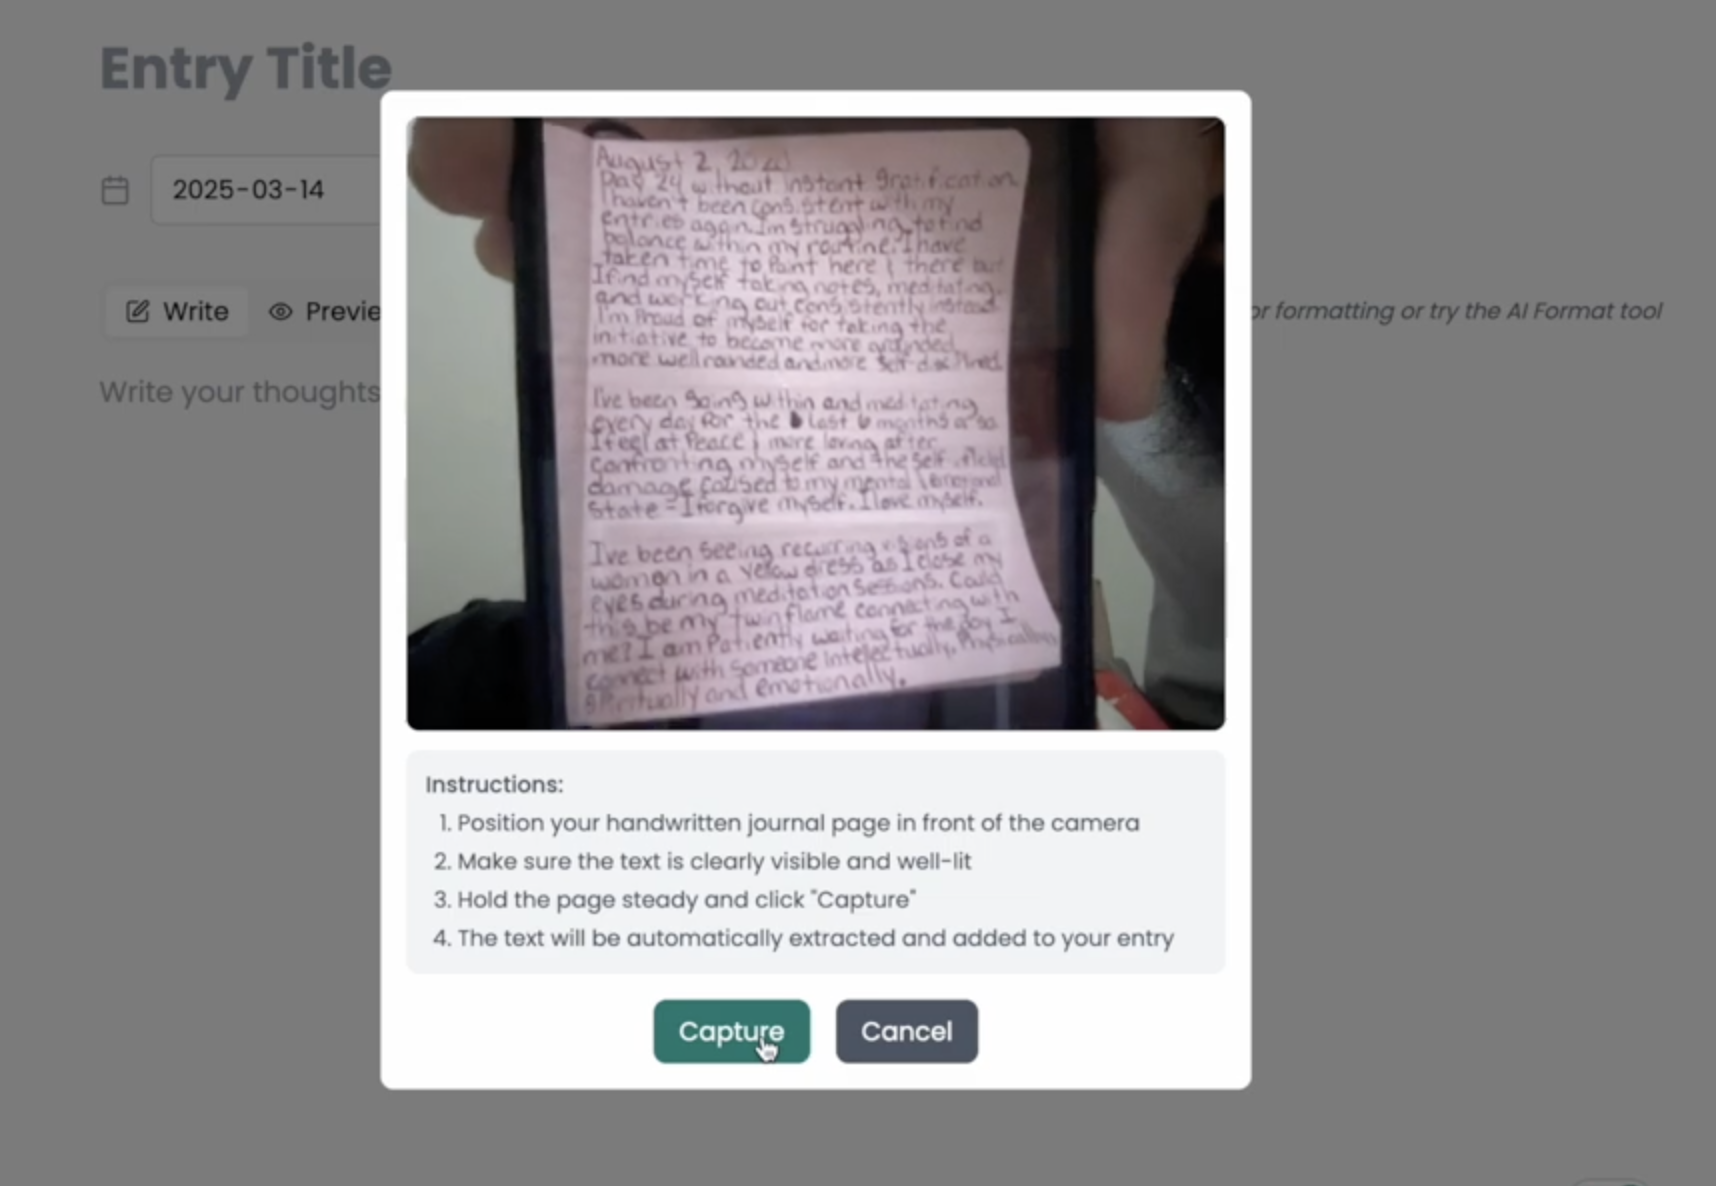 Entry Title
2025-03-14
Write
Previe
or formatting or try the AI Format tool
Write your thoughts
August 2, 20
Day 24 without instant gratification
I haven't been consistent with my
entries again. Im struggling to find
balance within my routine. I have
taken time to Paint here & there but
I find myself taking notes, meditating,
and working out consistently instead
I'm Proud of myself for taking the
initiative to become more grounded,
more well rounded and more self disciplined
I've been going within and meditating
every day for the last 6 months or so
I feel at Peace & more loving after
confronting myself and the self inflicted
damage caused to my mental & emotional
State - I forgive myself. I love myself.
I've been seeing recurring visions of a
woman in a yellow dress as I close my
eyes during meditation sessions. Could
this be my twin flame connecting with
me? I am Patiently waiting for the day I
connect with someone intelectually, Physically,
spiritually and emotionally.
Instructions:
1. Position your handwritten journal page in front of the camera
2. Make sure the text is clearly visible and well-lit
3. Hold the page steady and click "Capture"
4. The text will be automatically extracted and added to your entry
Capture
Cancel